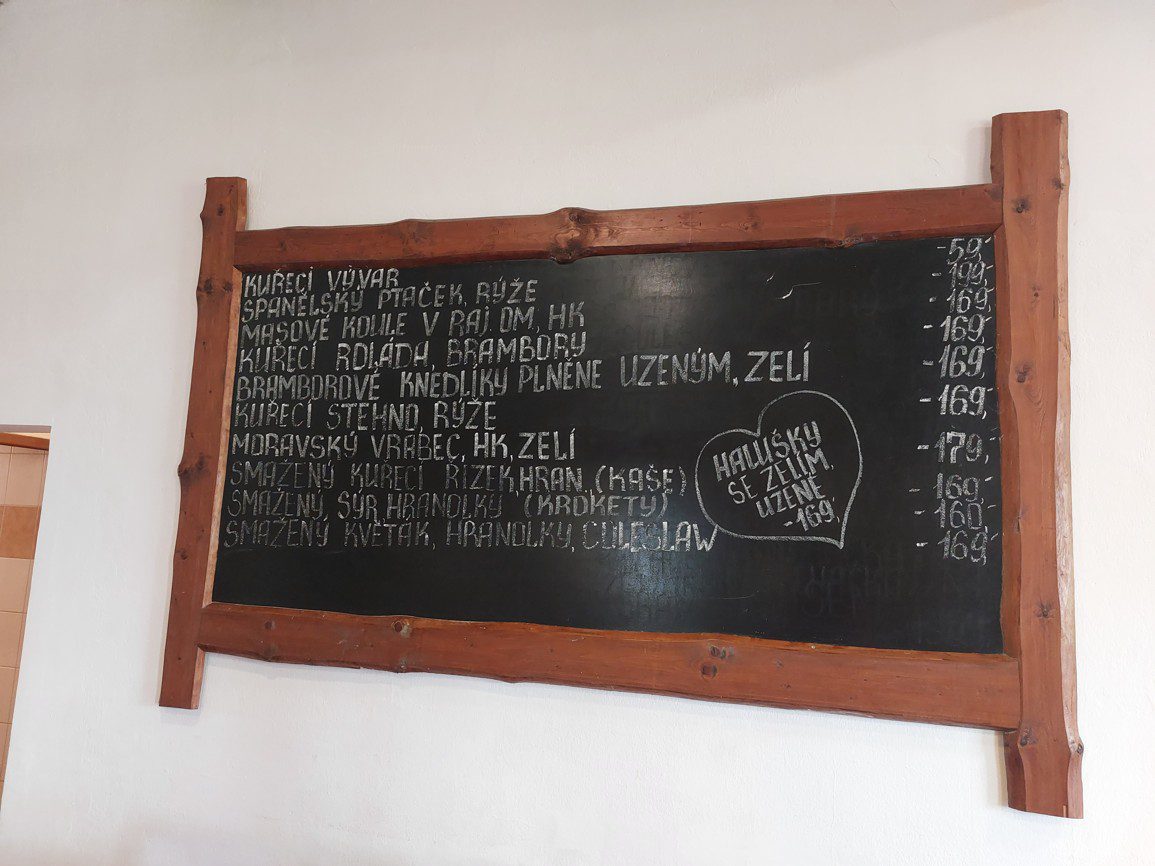 KUŘECÍ VÝVAR -59,
ŠPANĚLSKÝ PTAČEK, RÝŽE -199,
MASOVÉ KOULE V RAJ. OM, HK -169,
KUŘECÍ ROLÁDA, BRAMBORY -169,
BRAMBOROVÉ KNEDLÍKY PLNĚNE UZENÝM, ZELÍ -169,
KUŘECÍ STEHNO, RÝŽE -169,
MORAVSKÝ VRABEC, HK, ZELÍ -179,
SMAŽENÝ KUŘECÍ ŘÍZEK, HRAN. (KAŠE) -169,
SMAŽENÝ SÝR, HRANOLKY (KROKETY) -160,
SMAŽENÝ KVĚTÁK, HRANOLKY, COLESLAW -169,
HALUŠKY
SE ZELÍM,
UZENÉ
-169,